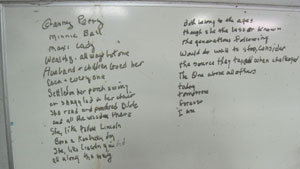 Granny Perry
Minnie Bell
maxi lady
Wealthy, all ways but one
Husband + children loved her
Seen + everyone
Settled on her porch swing
or snuggled in her chair
She read and pondered Bible
and all the wisdom there
She, like Father Lincoln
Born a Kentucky
She, like Lincoln
all along the way
Both belong to the ages
though she the less known
The generations following
Would do well to stop, consider
the source they tapped when challenged
The One above all others
today
tomorrow
forever
I am